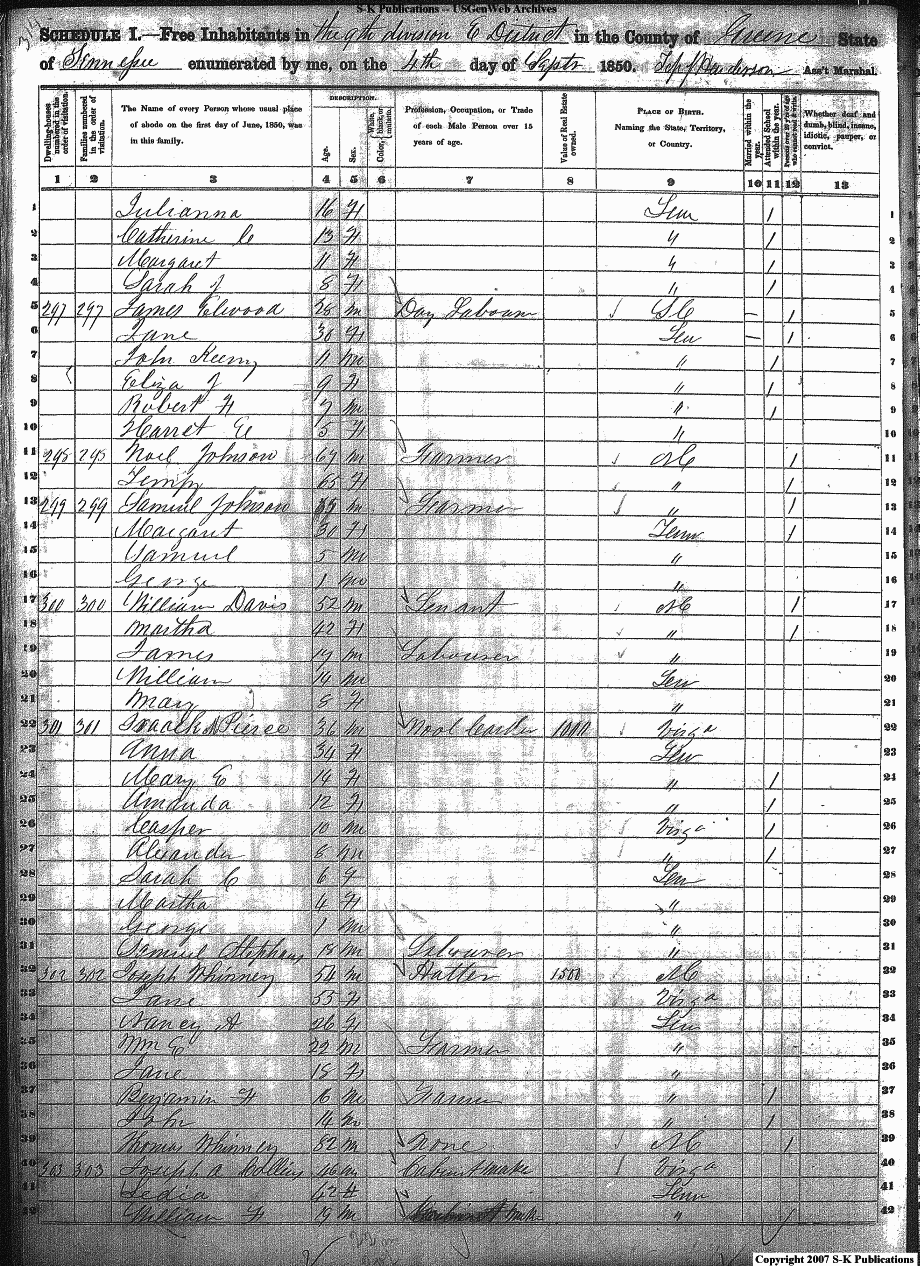 S-K Publications -- USGenWeb Archives
SCHEDULE I.—Free Inhabitants in the 9th division E District in the County of Greene State
of Tennessee enumerated by me, on the 4th day of Septr 1850. Ass't Marshal.
Dwelling-houses numbered in the order of visitation.
Families numbered in the order of visitation.
The Name of every Person whose usual place of abode on the first day of June, 1850, was in this family.
DESCRIPTION.
Age.
Sex.
Color, White, black, or mulatto.
Profession, Occupation, or Trade of each Male Person over 15 years of age.
Value of Real Estate owned.
PLACE OF BIRTH. Naming the State, Territory, or Country.
Married within the year.
Attended School within the year.
Persons over 20 y'rs of age who cannot read & write.
Whether deaf and dumb, blind, insane, idiotic, pauper, or convict.
1 2 3 4 5 6 7 8 9 10 11 12 13
1 Julianna 16 F Ten / 1
2 Catherine 13 F " / 2
3 Margaret 11 F " / 3
4 Sarah J 8 F " / 4
5 297 297 James Elwood 28 m Day Labourer SC – / 5
6 Jane 30 F Ten – / 6
7 John Keeny 11 m " / 7
8 Eliza J 9 F " / 8
9 Robert F 7 m " / 9
10 Harret E 5 F " 10
11 298 298 Noel Johnson 67 m Farmer NC / 11
12 Tempy 65 F " / 12
13 299 299 Samuel Johnson m Farmer " / 13
14 Margaret 30 F Tenn / 14
15 Samuel 5 m " 15
16 George 1 m " 16
17 300 300 William Davis 52 m Tenant NC / 17
18 Martha 42 F " / 18
19 James 17 m Labourer " 19
20 William 14 m Ten 20
21 Mary 8 F " 21
22 301 301 Pierce 36 m Wool Carder 1000 Virga 22
23 Anna 34 F Ten 23
24 Mary E 14 F " / 24
25 Amanda 12 F " / 25
26 Casper 10 m Virga / 26
27 Alexander 8 m " / 27
28 Sarah C 6 F Ten 28
29 Martha 4 F " 29
30 George 1 m " 30
31 Samuel Stephens 18 m Labourer " 31
32 302 302 Joseph Whinney 54 m Hatter 1500 NC 32
33 Jane 53 F Virga 33
34 Nancy A 26 F Ten 34
35 Wm E 22 m Farmer " 35
36 Jane 18 F " 36
37 Benjamin F 16 m Farmer " / 37
38 John 14 m " / 38
39 Thomas Whinney 82 m None NC / 39
40 303 303 Joseph A Collins 46 m Cabinet maker Virga 40
41 Ledia 42 F Tenn 41
42 William F 19 m " 42
Copyright 2007 S-K Publications